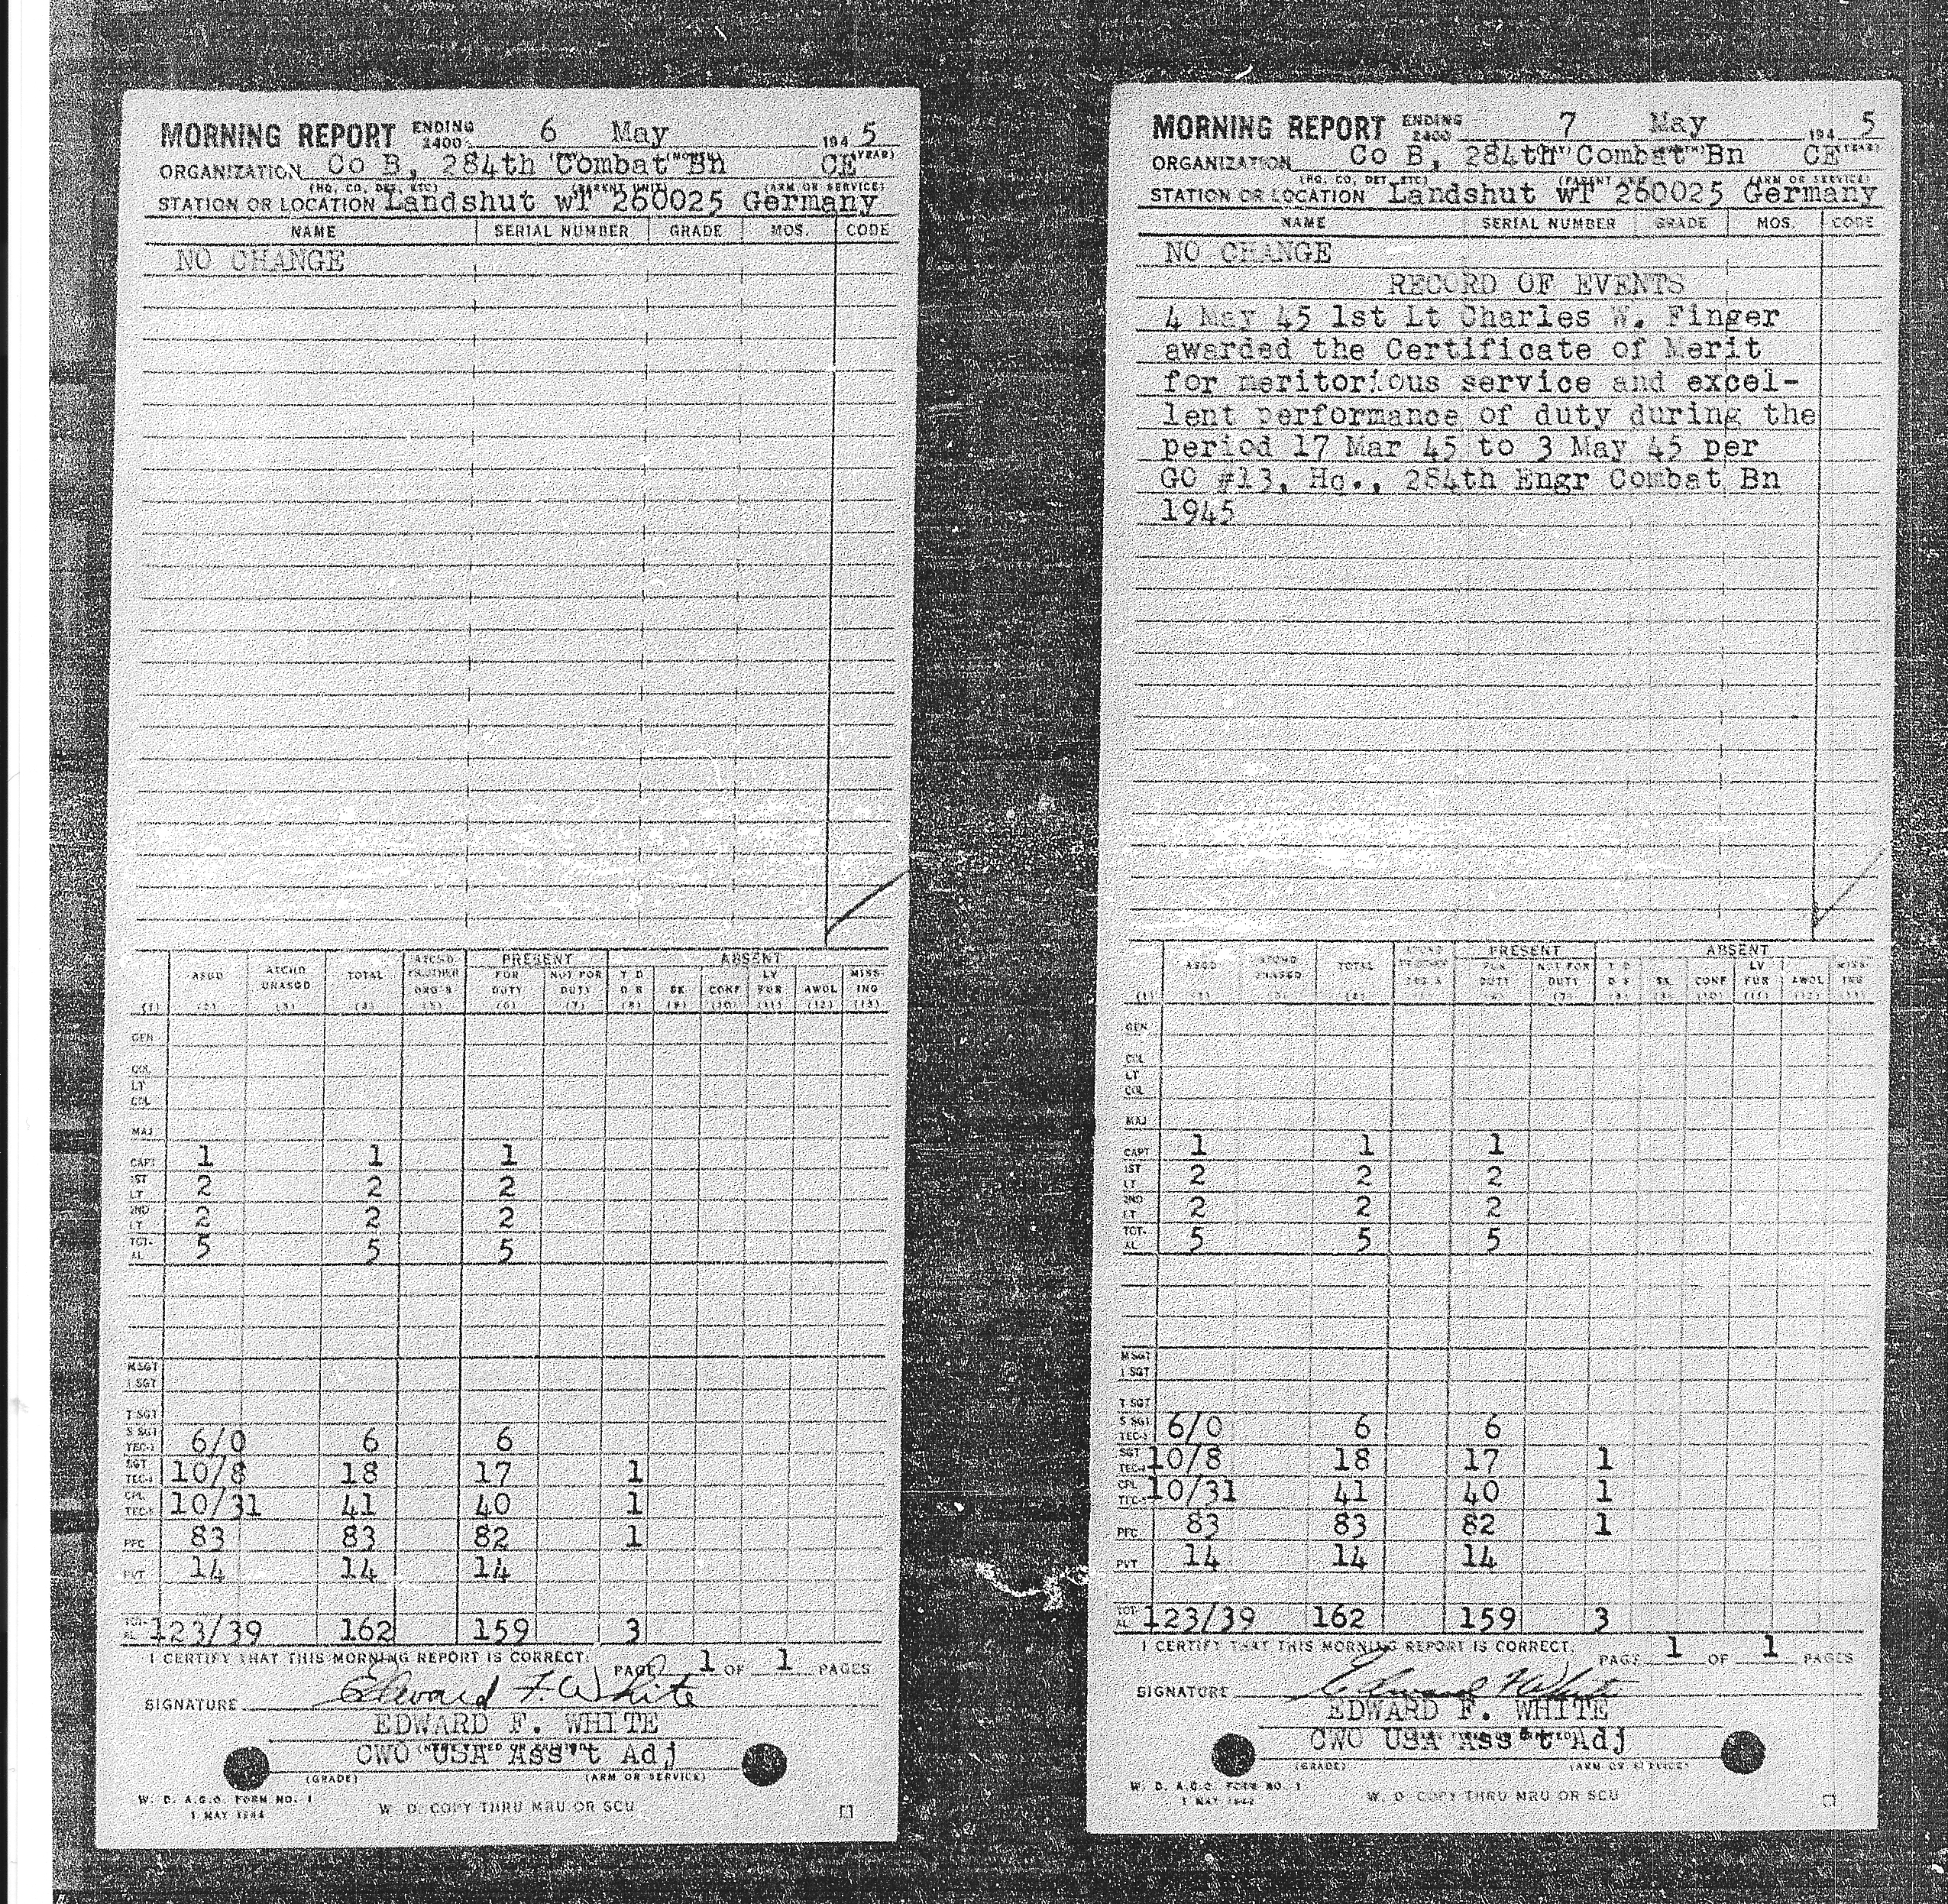 MORNING REPORT ENDING 2400 6 May 194 5
ORGANIZATION Co B, 284th Combat Bn CE
(HQ. CO, DET, ETC) (PARENT UNIT) (ARM OR SERVICE)
STATION OR LOCATION Landshut wT 260025 Germany
NAME SERIAL NUMBER GRADE MOS. CODE
NO CHANGE
PRESENT ABSENT
ASGD ATCHD UNASGD TOTAL ATCHD FR OTHER ORG'S FOR DUTY NOT FOR DUTY T D D S SK CONF LV FUR AWOL MISSING
(1) (2) (3) (4) (5) (6) (7) (8) (9) (10) (11) (12) (13)
GEN
COL
LT COL
MAJ
CAPT 1 1 1
1ST LT 2 2 2
2ND LT 2 2 2
TOTAL 5 5 5
M SGT
1 SGT
T SGT
S SGT TEC-3 6/0 6 6
SGT TEC-4 10/8 18 17 1
CPL TEC-5 10/31 41 40 1
PFC 83 83 82 1
PVT 14 14 14
TOTAL 123/39 162 159 3
I CERTIFY THAT THIS MORNING REPORT IS CORRECT.
PAGE 1 OF 1 PAGES
SIGNATURE Edward F. White
EDWARD F. WHITE
CWO USA Ass't Adj
(GRADE) (ARM OR SERVICE)
W. D. A.G.O. FORM NO. 1
1 MAY 1944
W. D. COPY THRU MRU OR SCU
MORNING REPORT ENDING 2400 7 May 194 5
ORGANIZATION Co B, 284th Combat Bn CE
(HQ. CO, DET, ETC) (PARENT UNIT) (ARM OR SERVICE)
STATION OR LOCATION Landshut wT 260025 Germany
NAME SERIAL NUMBER GRADE MOS. CODE
NO CHANGE
RECORD OF EVENTS
4 May 45 1st Lt Charles W. Finger
awarded the Certificate of Merit
for meritorious service and excel-
lent performance of duty during the
period 17 Mar 45 to 3 May 45 per
GO #13, Hq., 284th Engr Combat Bn
1945
PRESENT ABSENT
ASGD ATCHD UNASGD TOTAL FOR DUTY NOT FOR DUTY T D D S SK CONF LV FUR AWOL MISSING
GEN
COL
LT COL
MAJ
CAPT 1 1 1
1ST LT 2 2 2
2ND LT 2 2 2
TOTAL 5 5 5
M SGT
1 SGT
T SGT
S SGT TEC-3 6/0 6 6
SGT TEC-4 10/8 18 17 1
CPL TEC-5 10/31 41 40 1
PFC 83 83 82 1
PVT 14 14 14
TOTAL 123/39 162 159 3
I CERTIFY THAT THIS MORNING REPORT IS CORRECT.
PAGE 1 OF 1 PAGES
SIGNATURE Edward F White
EDWARD F. WHITE
CWO USA Ass't Adj
(GRADE) (ARM OR SERVICE)
W. D. A.G.O. FORM NO. 1
1 MAY
W. D. COPY THRU MRU OR SCU